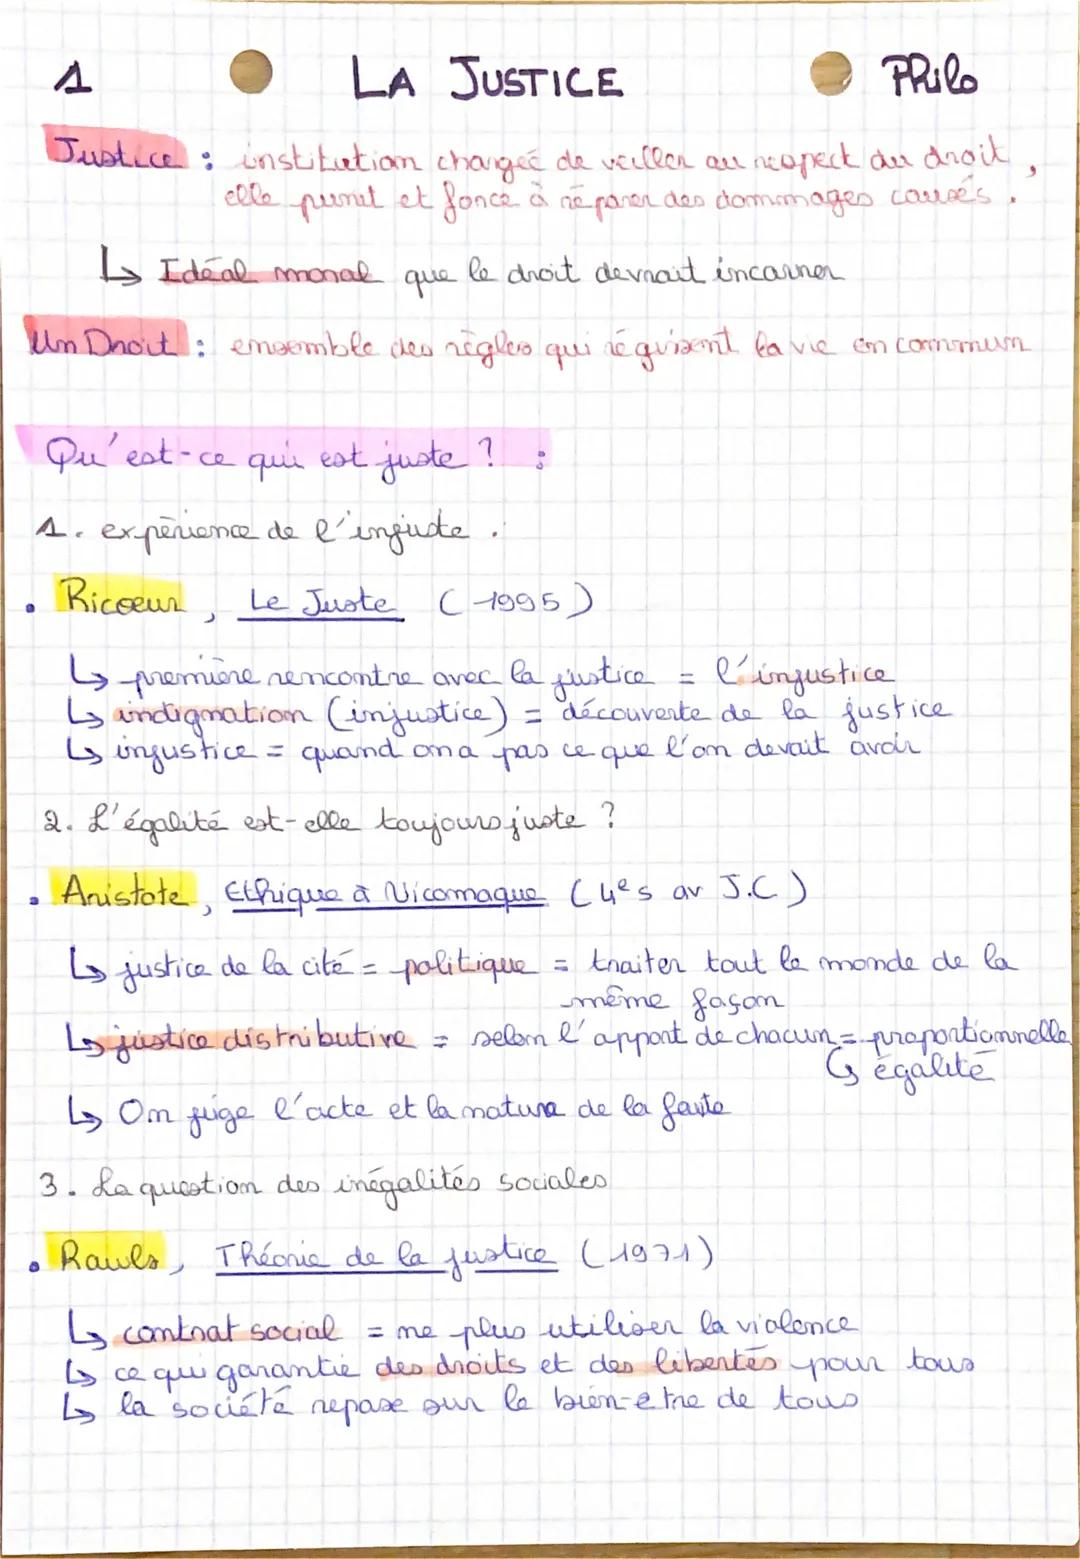 1 LA JUSTICE Philo
Justice : institution chargée de veiller au respect du droit,
elle punit et force à réparer des dommages causés.
↳ Idéal moral que le droit devrait incarner
Un Droit : ensemble des règles qui régissent la vie en commun
Qu'est-ce qui est juste ? :
1. expérience de l'injuste :
• Ricoeur, Le Juste (1995)
↳ première rencontre avec la justice = l'injustice
↳ indignation (injustice) = découverte de la justice
↳ injustice = quand on a pas ce que l'on devait avoir
2. L'égalité est-elle toujours juste ?
• Aristote, Ethique à Nicomaque (4es av J.C)
↳ justice de la cité = politique = traiter tout le monde de la
même façon
↳ justice distributive = selon l'apport de chacun = proportionnelle
↳ égalité
↳ On juge l'acte et la nature de la faute
3. La question des inégalités sociales
• Rawls, Théorie de la justice (1971)
↳ contrat social = ne plus utiliser la violence
↳ ce qui garantie des droits et des libertés pour tous
↳ la société repose sur le bien-etre de tous